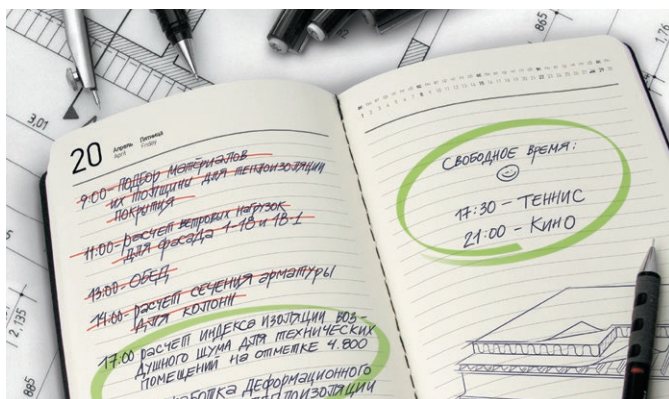 3,01
865
1,76
20 Апрель Пятница
April Friday
9:00 - ПОДБОР МАТЕРИАЛОВ
ИХ ТОЛЩИНЫ ДЛЯ ТЕПЛОИЗОЛЯЦИИ
ПОКРЫТИЯ
11:00 - РАСЧЕТ ВЕТРОВЫХ НАГРУЗОК
ДЛЯ ФАСАДА 1-18 И 18-1
13:00 - ОБЕД
14:00 - РАСЧЕТ СЕЧЕНИЯ АРМАТУРЫ
ДЛЯ КОЛОНН
17:00 РАСЧЕТ ИНДЕКСА ИЗОЛЯЦИИ ВОЗ-
ДУШНОГО ШУМА ДЛЯ ТЕХНИЧЕСКИХ
ПОМЕЩЕНИЙ НА ОТМЕТКЕ 4.800
ДЕФОРМАЦИОННОГО
СВОБОДНОЕ ВРЕМЯ:
17:30 - ТЕННИС
21:00 - КИНО
2,135
885